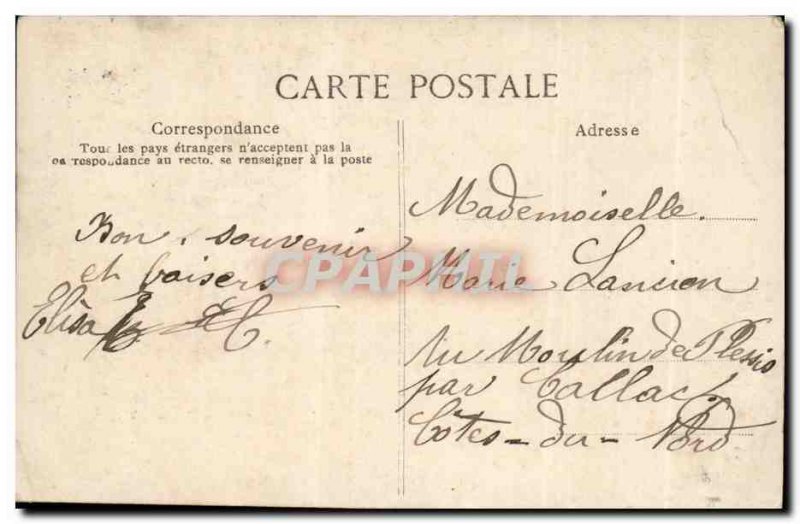 CARTE POSTALE
Correspondance
Tous les pays étrangers n'acceptent pas la
correspondance au recto. se renseigner à la poste
Adresse
Bon souvenir
et baisers
Elisa
Mademoiselle
Marie Lancien
Au Moulin de Plessis
par Callac
Côtes-du-Nord
CPAPHIL